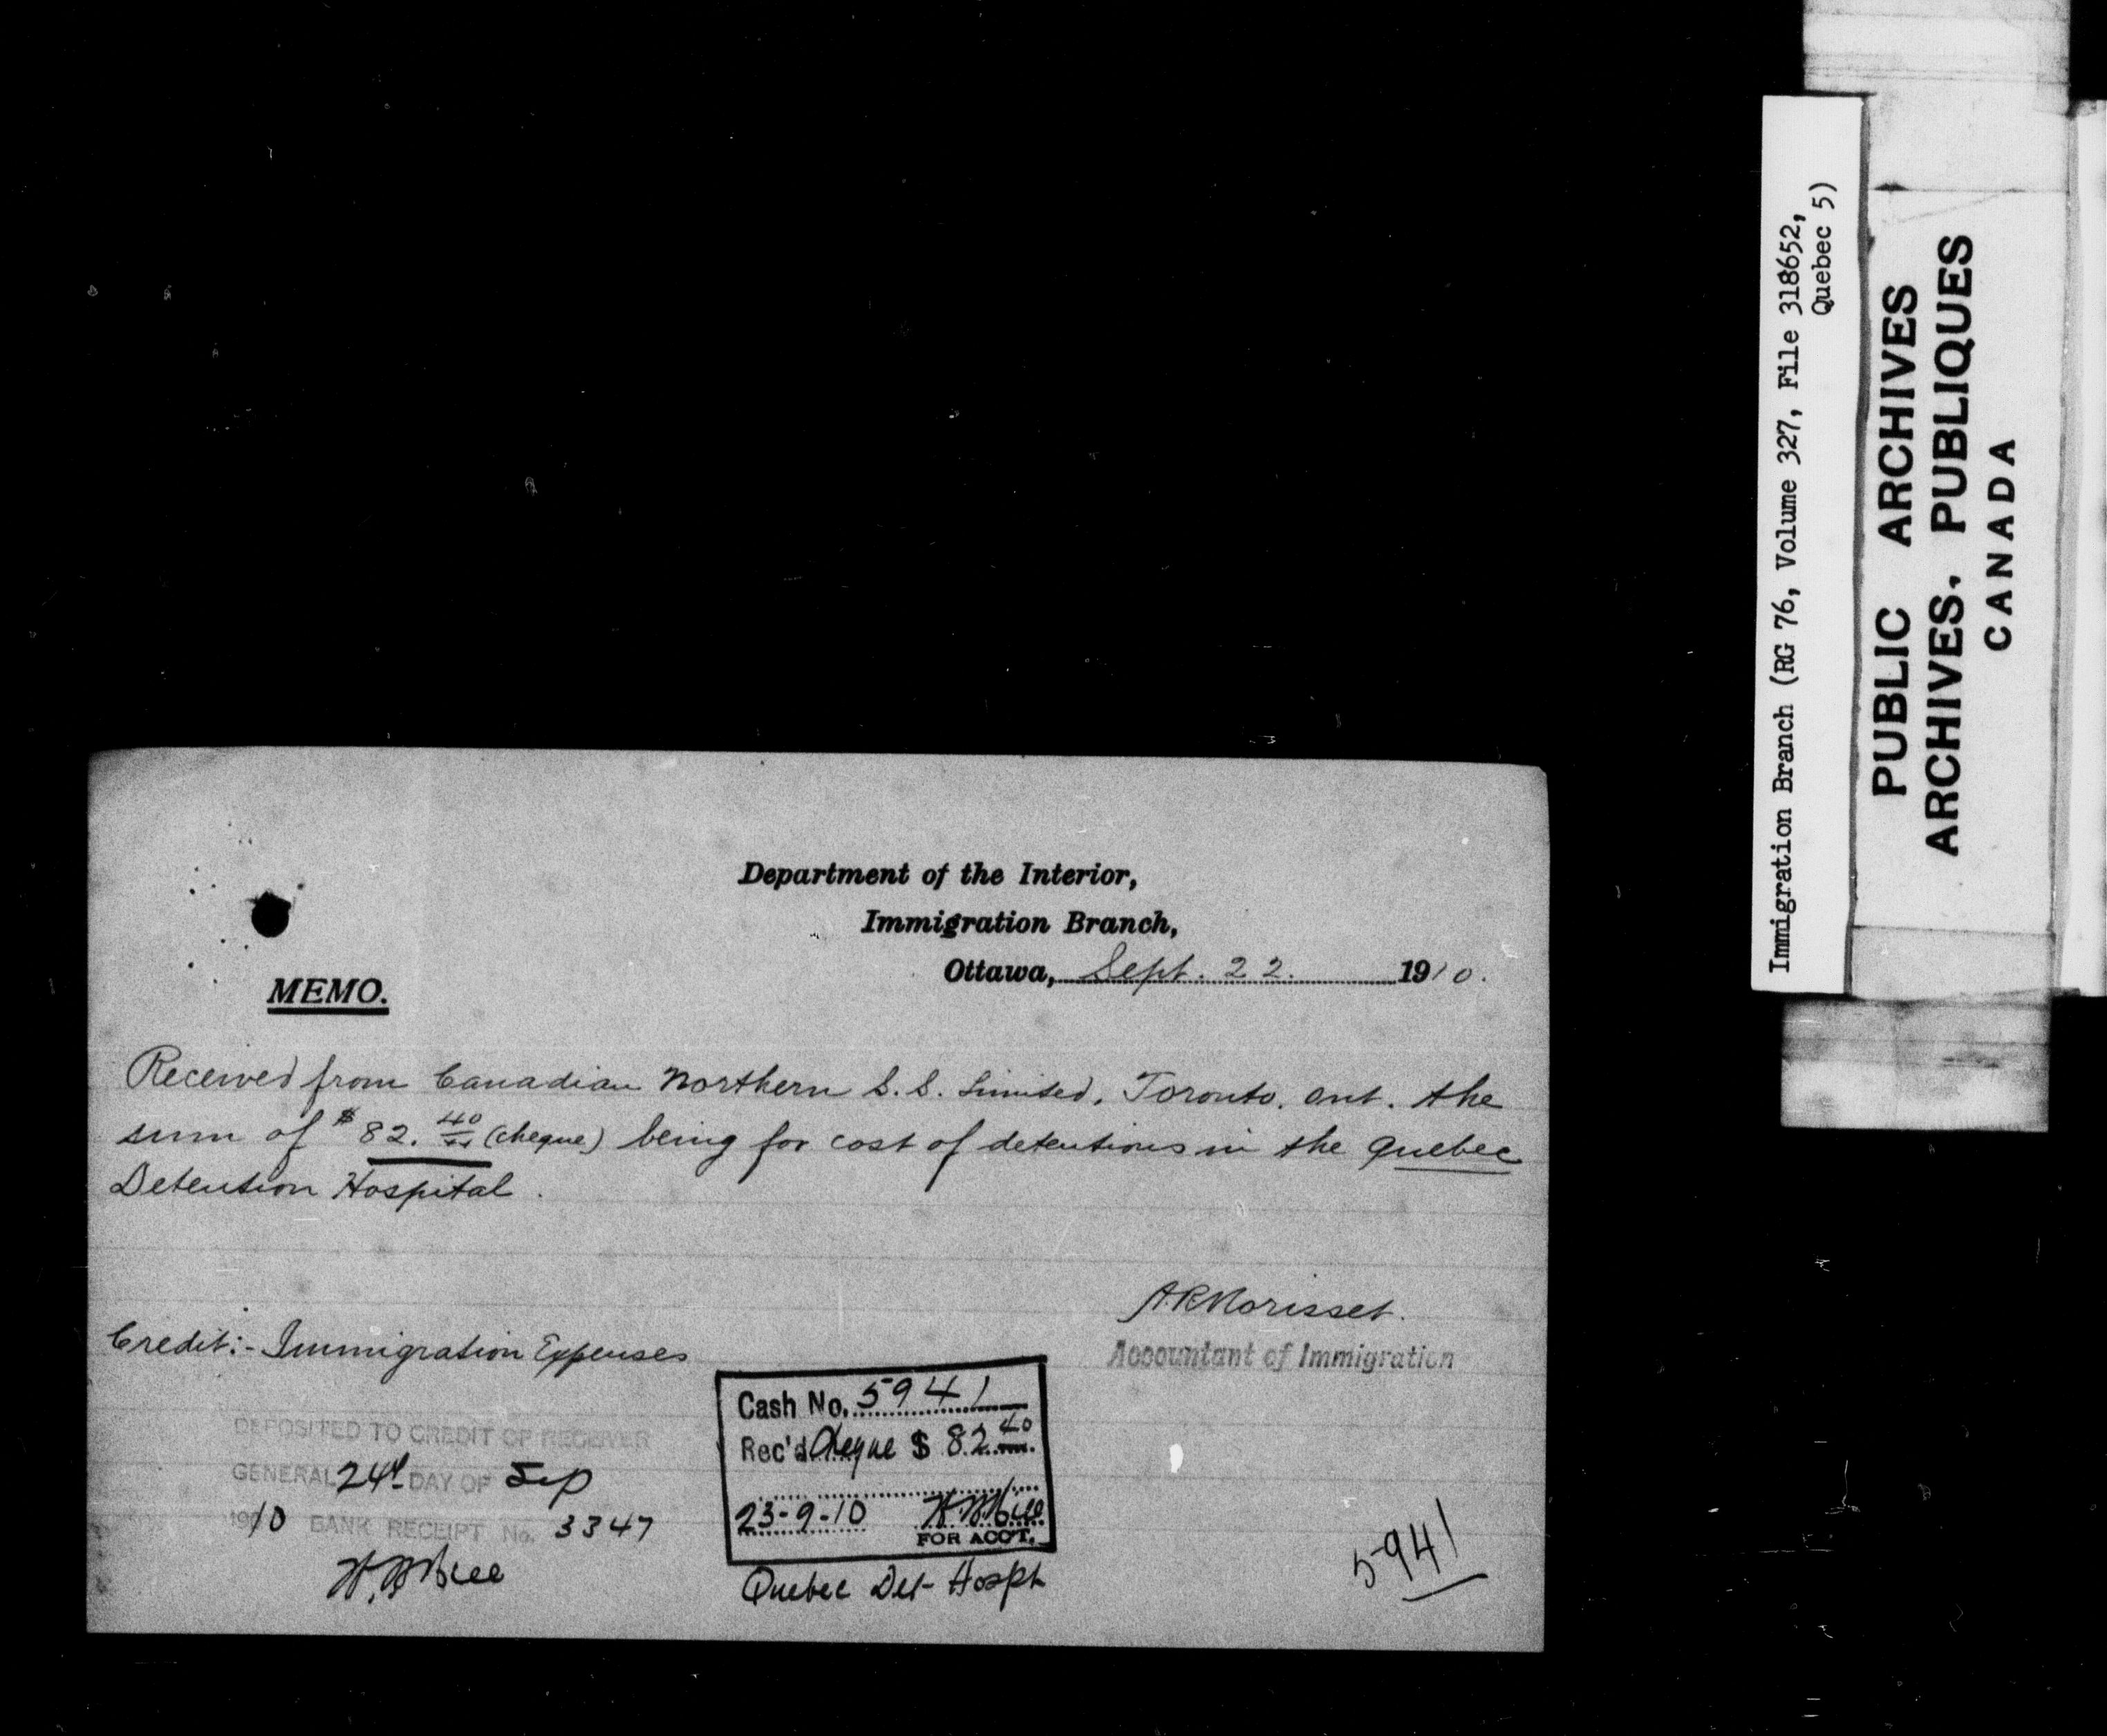 Department of the Interior,
Immigration Branch,
Ottawa, Sept. 22. 1910.
MEMO.
Received from Canadian Northern S.S. Limited, Toronto. Ont. the
sum of $82.40 (cheque) being for cost of detentions in the Quebec
Detention Hospital.
A.R. Morisset.
Accountant of Immigration
Credit:- Immigration Expenses
DEPOSITED TO CREDIT OF RECEIVER
GENERAL 24th DAY OF Sep
1910 BANK RECEIPT No. 3347
Cash No. 5941
Rec'd Cheque $ 82.40
23-9-10
FOR ACC'T.
Quebec Det- Hospt
5941
Immigration Branch (RG 76, Volume 327, File 318652,
Quebec 5)
PUBLIC ARCHIVES
ARCHIVES. PUBLIQUES
CANADA